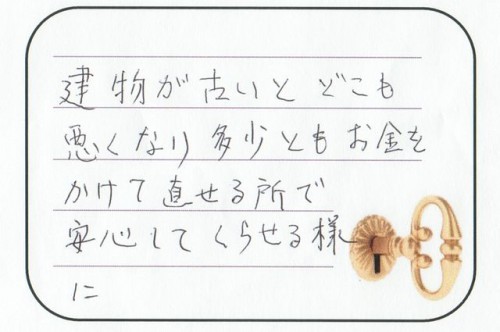 建物が古いと どこも
悪くなり 多少とも お金を
かけて 直せる所で
安心して くらせる様
に